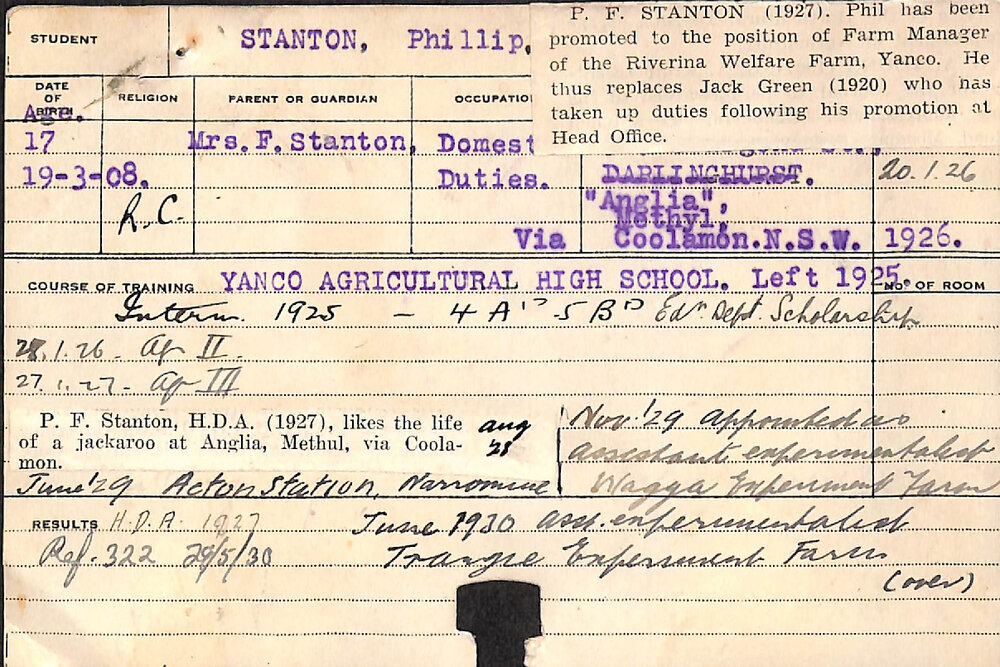 STUDENT
STANTON, Phillip.
P. F. STANTON (1927). Phil has been
promoted to the position of Farm Manager
of the Riverina Welfare Farm, Yanco. He
thus replaces Jack Green (1920) who has
taken up duties following his promotion at
Head Office.
DATE OF BIRTH RELIGION PARENT OR GUARDIAN OCCUPATIO
Age.
17 Mrs. F. Stanton, Domest
19-3-08. Duties. DARLINGHURST. 20.1.26
R.C. "Anglia",
Methyl,
Via Coolamon.N.S.W. 1926.
COURSE OF TRAINING YANCO AGRICULTURAL HIGH SCHOOL. Left 1925. NO. OF ROOM
Interm. 1925 - 4 A's 5 B's Edn. Dept. Scholarship
.1.26 - Ag II.
27.1.27 - Ag III
P. F. Stanton, H.D.A. (1927), likes the life
of a jackaroo at Anglia, Methul, via Coola-
mon.
aug
28
Nov '29 appointed as
assistant experimentalist
Wagga Experiment Farm
June '29 Acton Station, Narromine
RESULTS H.D.A. 1927 June 1930 asst. experimentalist
Ref. 322 29/5/30 Trangie Experiment Farm
(over)